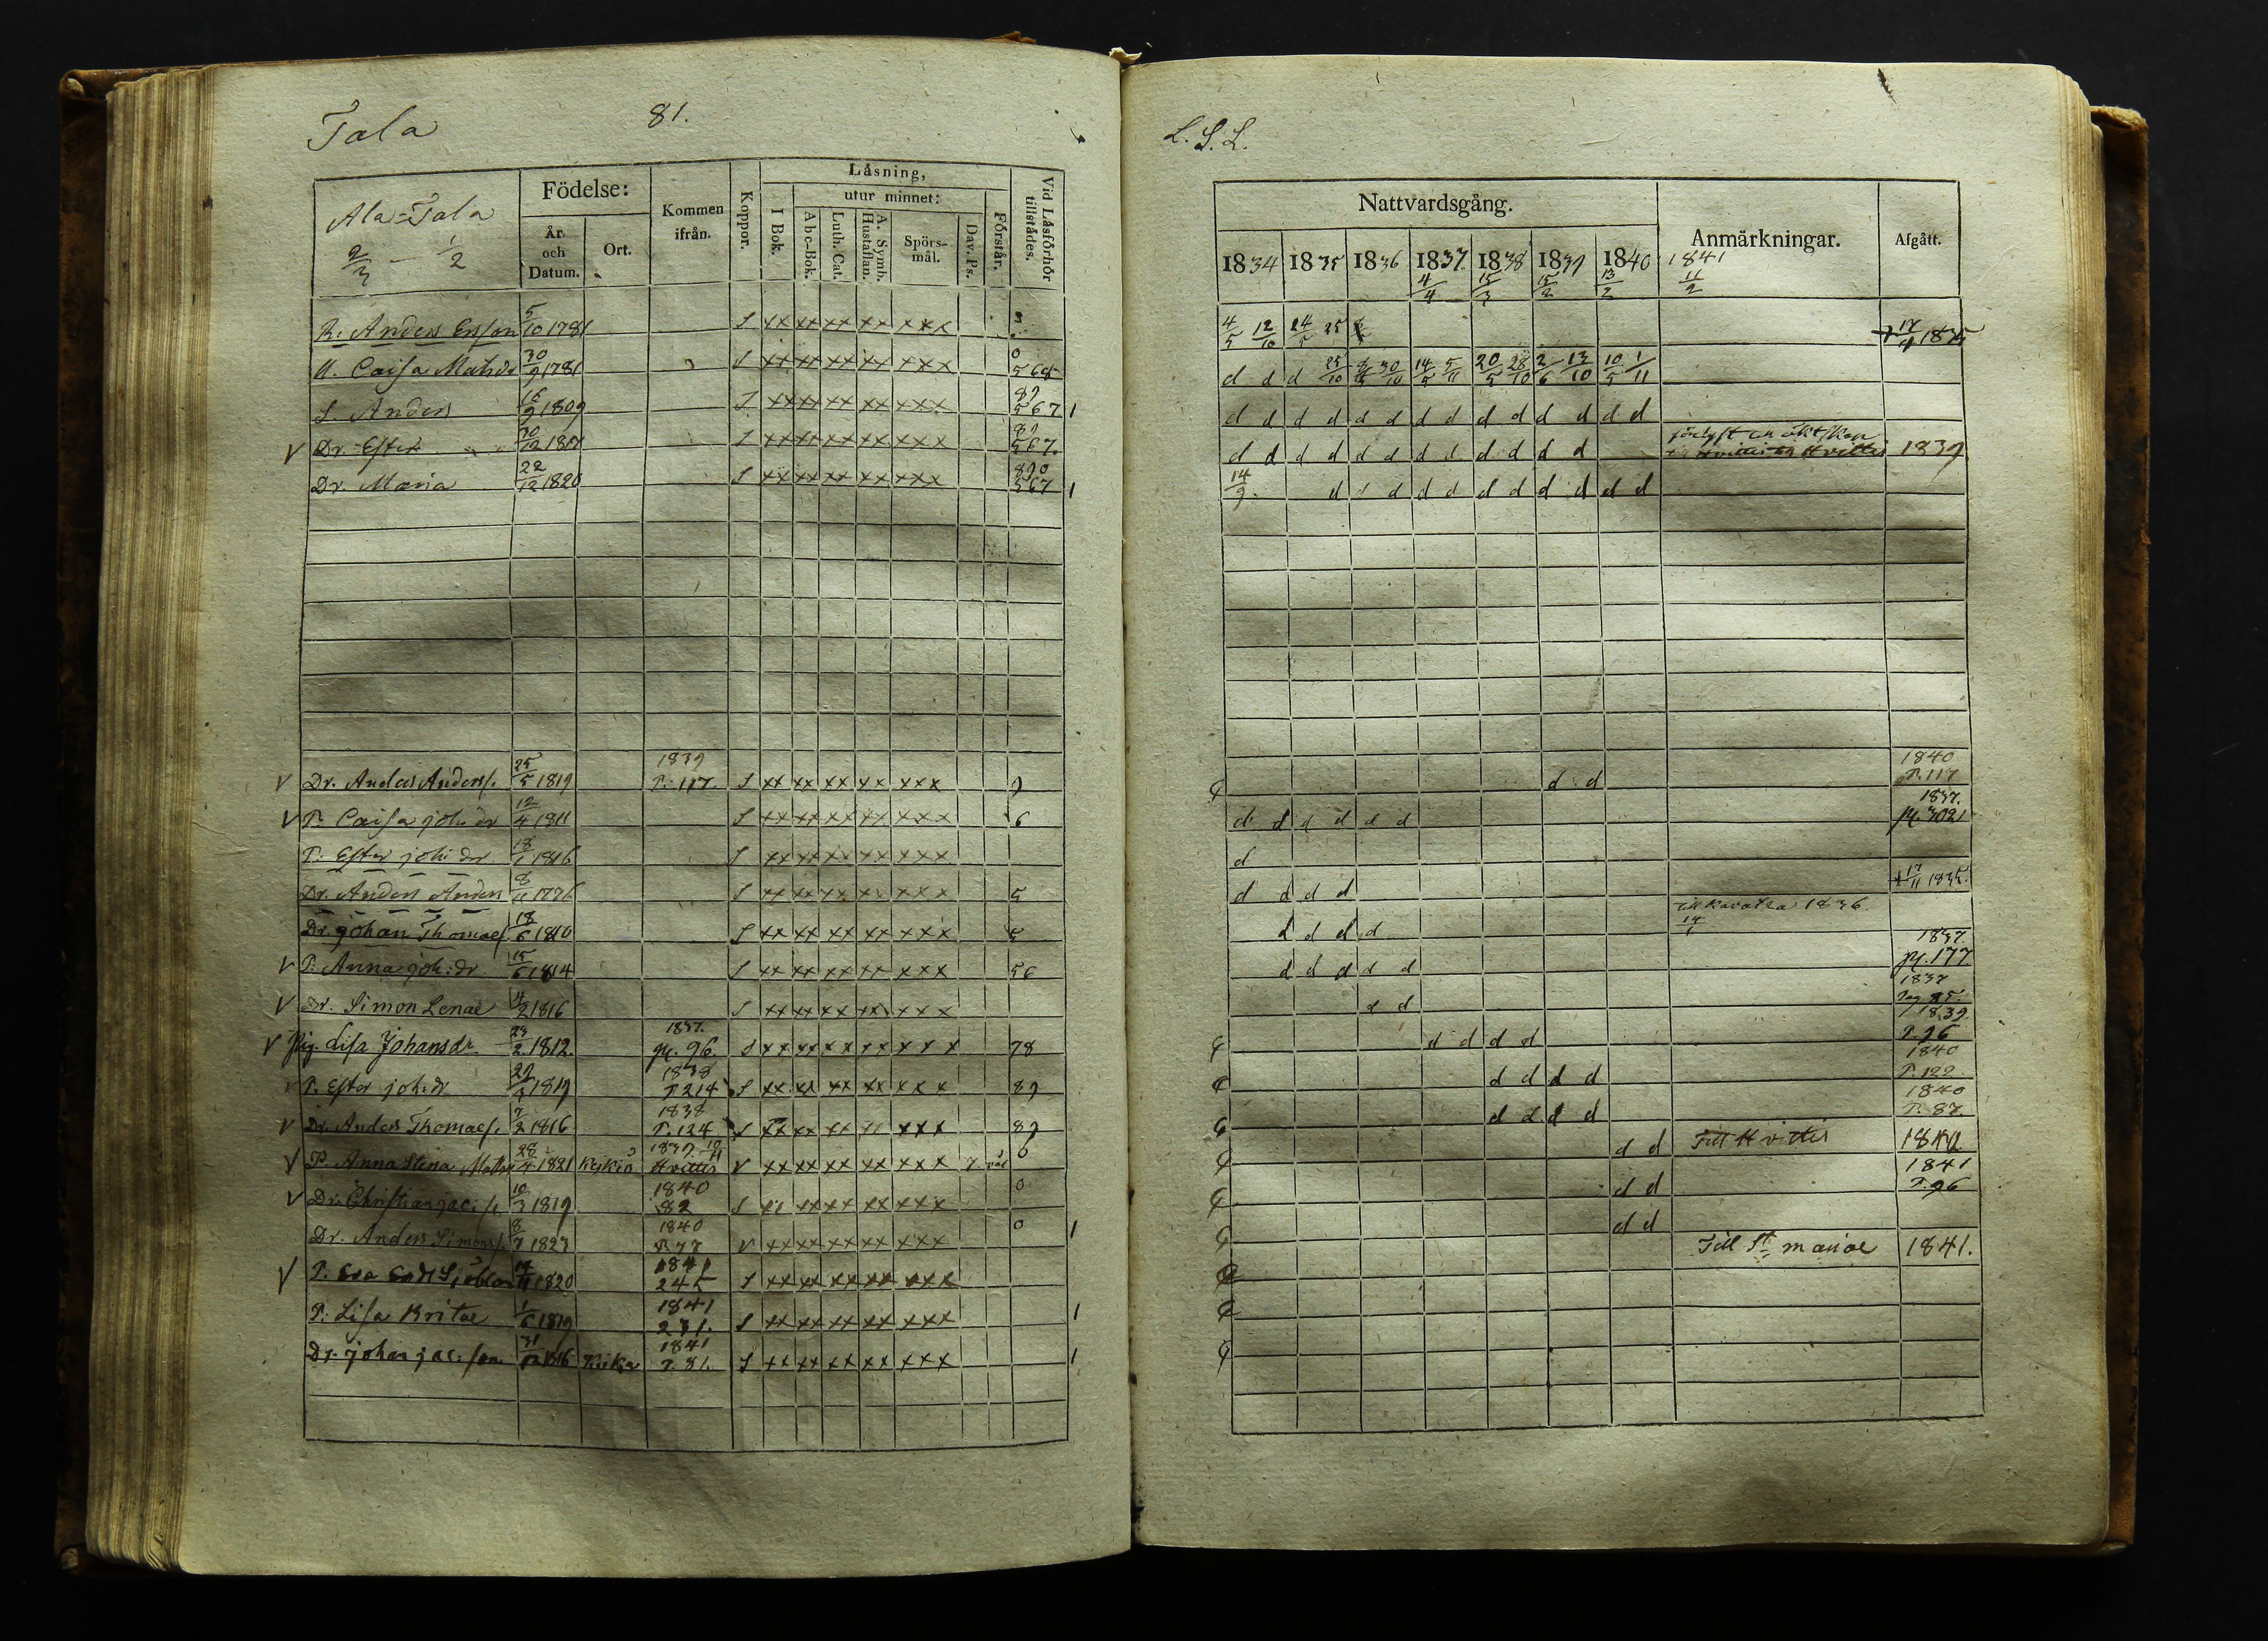 Tala 81.
Ala-Tala
2/3 — 1/2
Födelse:
År och Datum.
Ort.
Kommen ifrån.
Koppor.
Låsning,
I Bok.
utur minnet:
Abc-Bok.
Luth. Cat.
A. Symb. Hustaflan.
Spörsmål.
Dav. Ps.
Förstår.
Vid Låsförhör tillstädes.
R. Anders Ersson 5/10 1781 S xx xx xx xx xxx
U. Caisa Matsdr 30/9 1781 S xx xx xx xx xxx 0 568
S. Anders 16/9 1809 S xx xx xx xx xxx 89 567 1
V Dr. Ester 30/12 1817 S xx xx xx xx xxx 89 567.
Dr. Maria 22/12 1820 S xx xx xx xx xxx 890 567 1
V Dr. Anders Anders s. 25/5 1819 1839 P. 117. S xx xx xx xx xxx 9
V P. Caisa joh: dr 12/4 1811 S xx xx xx xx xxx 6
P: Ester joh: dr 18/1 1816 S xx xx xx xx xxx
Dr. Anders Anders 8/11 1776 S xx xx xx xx xxx 5
Dr. johan Thomaes. 18/6 1810 S xx xx xx xx xxx 5
V P: Anna joh: dr 15/6 1814 S xx xx xx xx xxx 56
V Dr. Simon Lenae 4/2 1816 S xx xx xx xx xxx
V Pig. Lisa Johansdr 23/2 1812. 1837. pg. 96. S xx xx xx xx xxx 78
P. Ester joh: dr 1819 1838 P 214 S xx xx xx xx xxx 89
V Dr. Anders Thomaes. 7/2 1816 1838 P. 124 S xx xx xx xx xxx 89
V P. Anna Stina Mats 28/4 1821 Keikiö 1839 10/11 Hvittis V xx xx xx xx xxx 0
V Dr. Christian jac: s. 10/3 1819 1840 82 S xx xx xx xx xxx 0
Dr. Anders Simons s. 8/7 1823 1840 P. 77 V xx xx xx xx xxx 0 1
V P. Eva 1820 1841 245 S xx xx xx xx xxx
P: Lisa Britae 1/6 1819 1841 231. S xx xx xx xx xxx 1
Dr. johan jac: son 31/12 1816 Keikiä 1841 P. 81. S xx xx xx xx xxx 1
L. S. L.
Nattvardsgång.
Anmärkningar.
Afgått.
1834 1835 1836 1837. 1838 1839 1840 1841
4/4 15/3 15/2 13/2 11/2
4/5 12/10 24/5 25
d d d 25/10 30/10 14/5 5/11 20/5 28/10 2/6 13/10 10/5 1/11
d d d d d d d d d d d d d d
d d d d d d d d d d d d Hvittis 1839
14/9. d d d d d d d d d d
d d 1840 P. 117
d d d d d d 1837. pg. 302
d
d d d d 17/11 1835.
d d d d Till Kavatsa 1836.
d d d d d 1837. pg. 177
d d 1837 Pag 85.
d d d d 1839. P. 96
d d d d 1840 P. 122.
d d d d 1840 P. 87.
d d Till Hvittis
d d 1841 P. 96
d d
Till St mariae 1841.